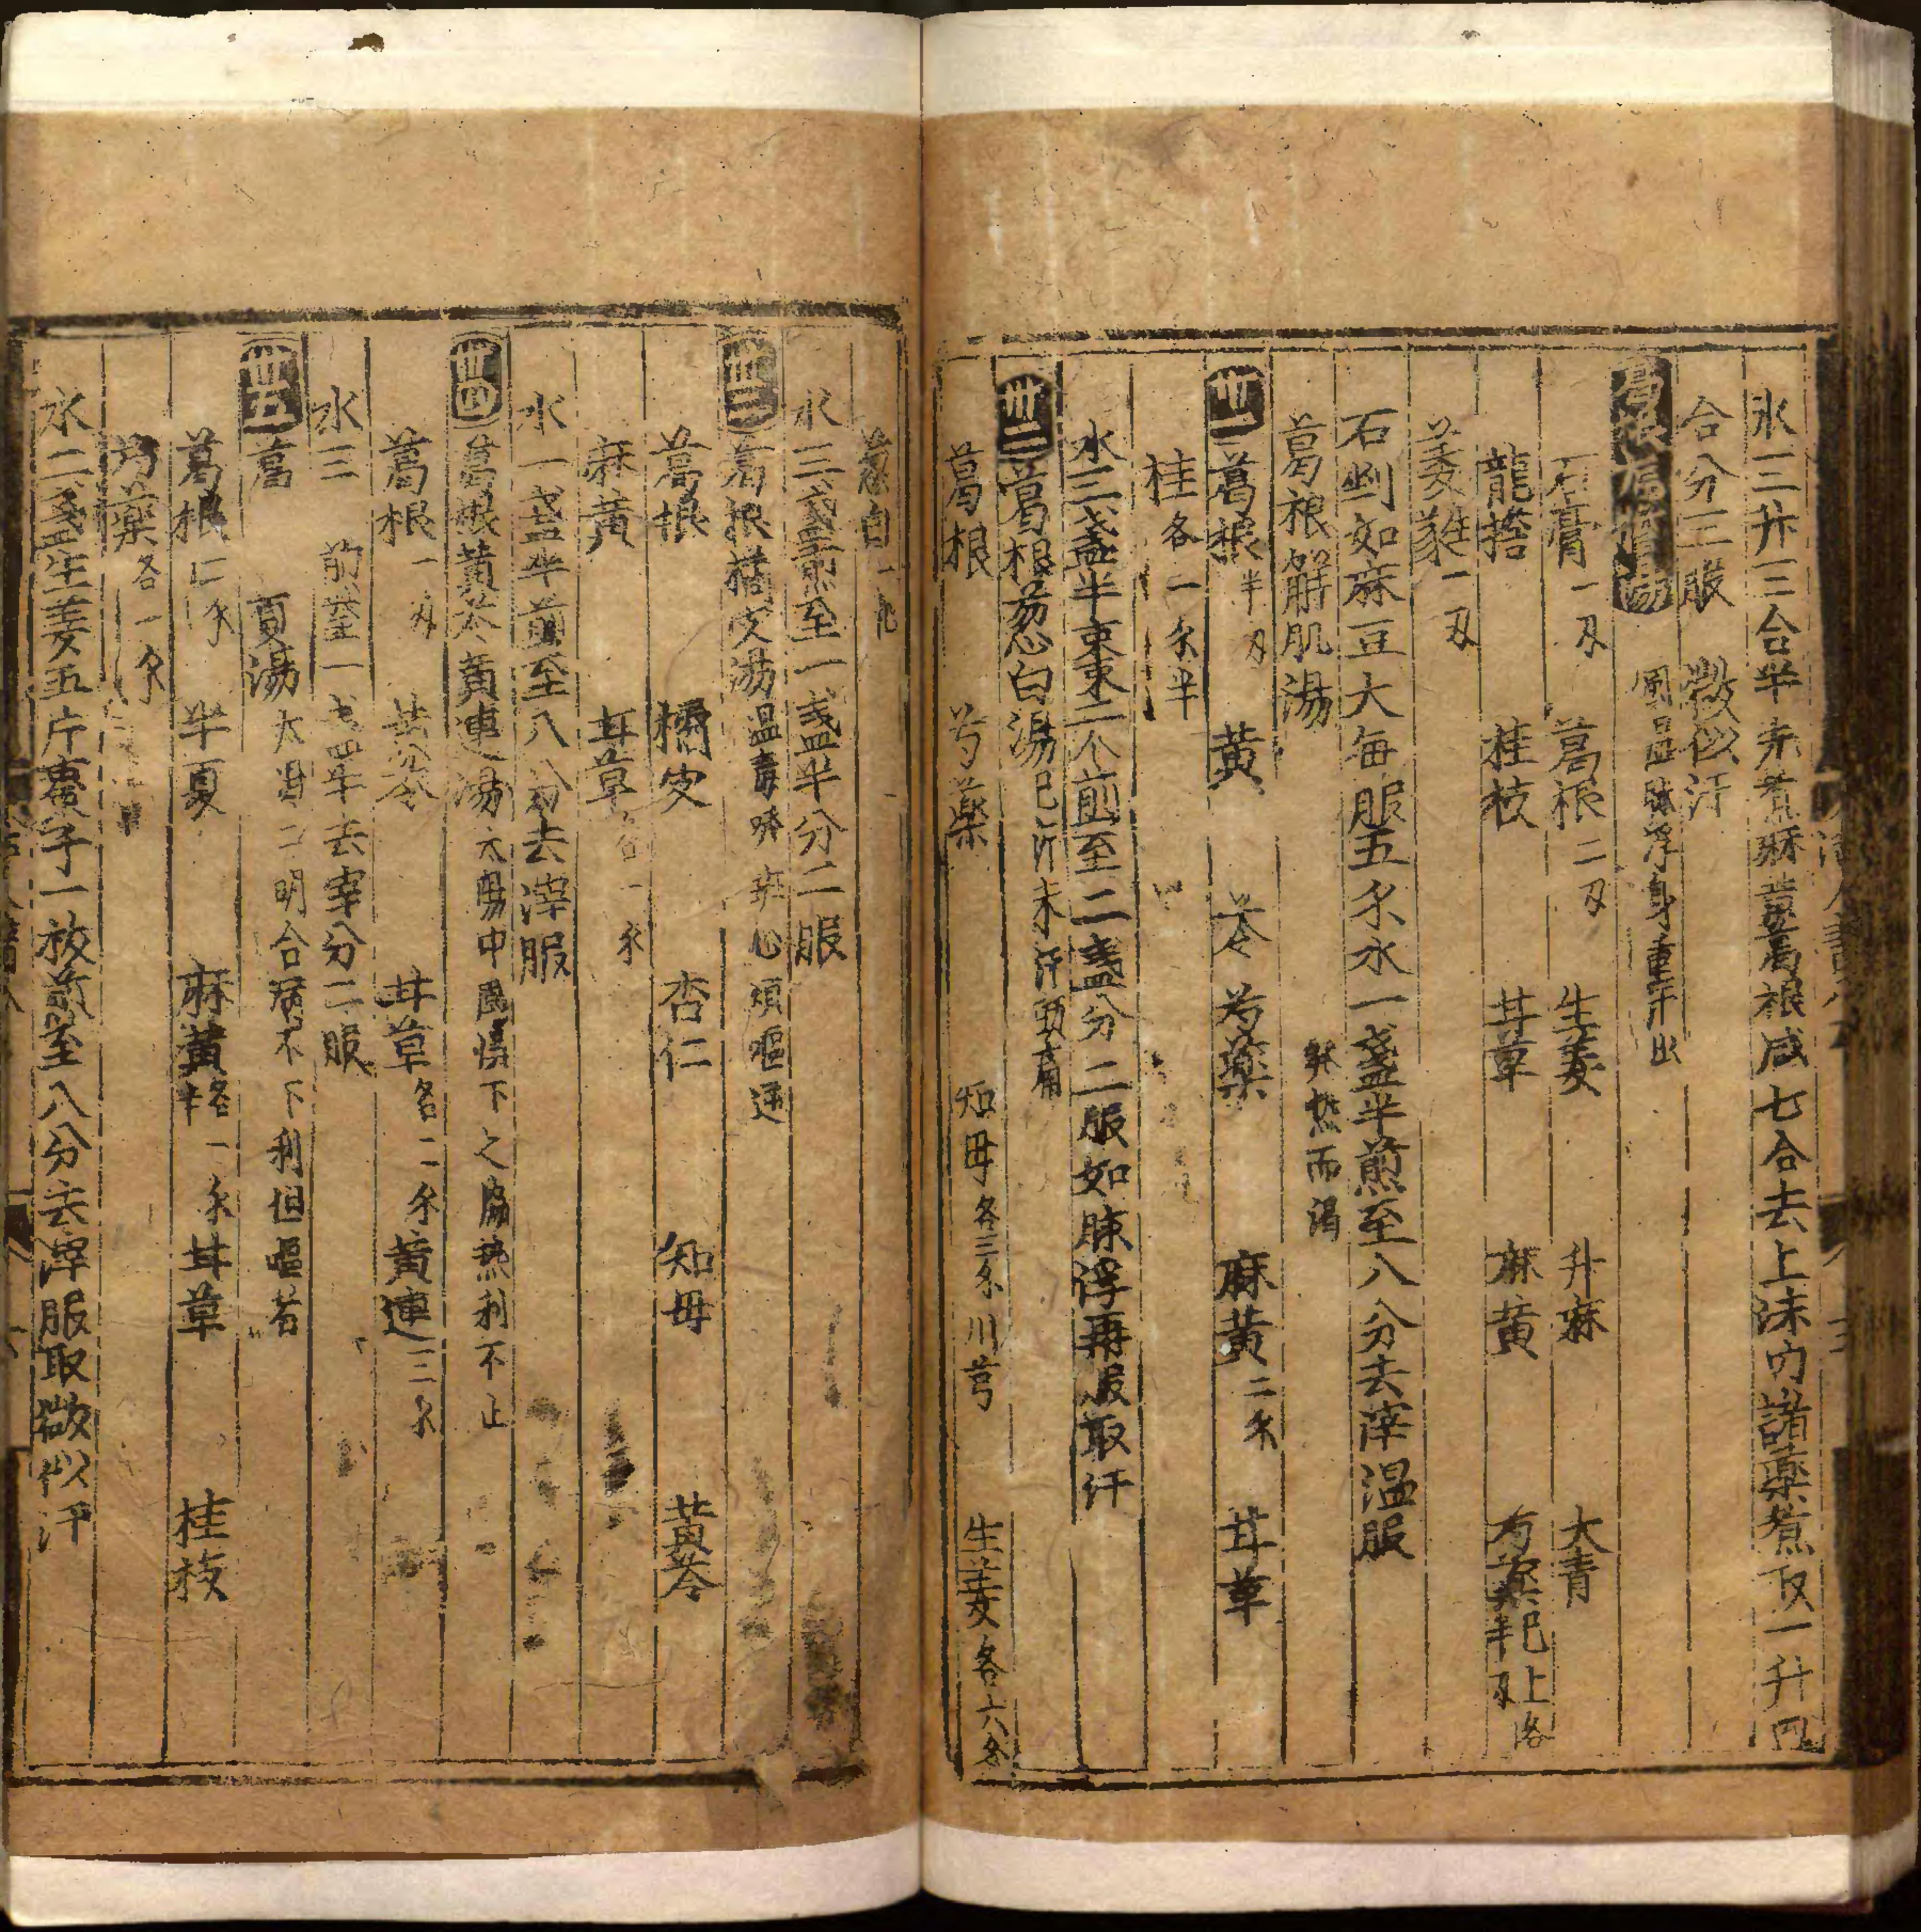 水三升三合半先煮麻黃葛根咸七合去上沫内諸藥煮取一升四
合分三服 微似汗
風昷脉浮身重汗出
石膏一刄 葛根二刄 生姜 升麻 大青
龍 桂枝 甘草 麻黄 芍藥 半刄
萎蕤一刄
石剉如麻豆大每服五尒水一盞半煎至八分去滓温服
葛根解肌湯 發热而渴
卅一 葛根半刄 黃芩 芍藥 麻黃二尒 甘草
桂各一尒半
水三盞半束束二个煎至二盞分二服如脉浮再服取汗
卅二 葛根葱白湯 已汗未汗頭痛
葛根 芍藥 知母各三尒 川芎 生姜各六尒
葱白一
水三盞煎至一盞半分二服
卅三 葛根橘皮湯 温毒 心煩嘔逆
葛根 橘皮 杏仁 知母 黃芩
麻黃 甘草各一尒
水一盞半煎至八分去滓服
卅四 葛根黃芩黃連湯 太陽中風悮下之 热利不止
葛根一刄 黃芩 甘草各二尒 黃連三尒
水三 煎至一 半去滓分二服
卅五 葛 夏湯 太 明合病不下利但嘔者
葛根二尒 半夏 麻黃 一尒 甘草 桂枝
芍藥各一尒
水二盞生姜五片棗子一枚煎至八分去滓服取微似汗